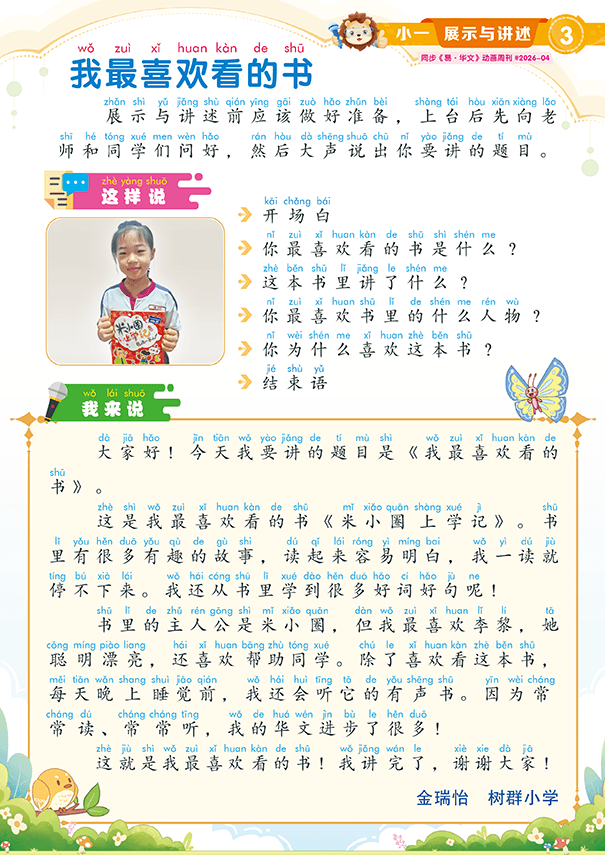 小一 展示与讲述 3
同步《易·华文》动画周刊 #2026-04
wǒ zuì xǐ huan kàn de shū
我最喜欢看的书
zhǎn shì yǔ jiǎng shù qián yīng gāi zuò hǎo zhǔn bèi shàng tái hòu xiān xiàng lǎo
展示与讲述前应该做好准备，上台后先向老
shī hé tóng xué men wèn hǎo rán hòu dà shēng shuō chū nǐ yào jiǎng de tí mù
师和同学们问好，然后大声说出你要讲的题目。
zhè yàng shuō
这样说
kāi chǎng bái
开场白
nǐ zuì xǐ huan kàn de shū shì shén me
你最喜欢看的书是什么？
zhè běn shū lǐ jiǎng le shén me
这本书里讲了什么？
nǐ zuì xǐ huan shū lǐ de shén me rén wù
你最喜欢书里的什么人物？
nǐ wèi shén me xǐ huan zhè běn shū
你为什么喜欢这本书？
jié shù yǔ
结束语
米小圈
上学记
wǒ lái shuō
我来说
dà jiā hǎo jīn tiān wǒ yào jiǎng de tí mù shì wǒ zuì xǐ huan kàn de
大家好！今天我要讲的题目是《我最喜欢看的
shū
书》。
zhè shì wǒ zuì xǐ huan kàn de shū mǐ xiǎo quān shàng xué jì shū
这是我最喜欢看的书《米小圈上学记》。书
lǐ yǒu hěn duō yǒu qù de gù shi dú qǐ lái róng yì míng bai wǒ yì dú jiù
里有很多有趣的故事，读起来容易明白，我一读就
tíng bú xià lái wǒ hái cóng shū lǐ xué dào hěn duō hǎo cí hǎo jù ne
停不下来。我还从书里学到很多好词好句呢！
shū lǐ de zhǔ rén gōng shì mǐ xiǎo quān dàn wǒ zuì xǐ huan lǐ lí tā
书里的主人公是米小圈，但我最喜欢李黎，她
cōng míng piào liang hái xǐ huan bāng zhù tóng xué chú le xǐ huan kàn zhè běn shū
聪明漂亮，还喜欢帮助同学。除了喜欢看这本书，
měi tiān wǎn shang shuì jiào qián wǒ hái huì tīng tā de yǒu shēng shū yīn wèi cháng
每天晚上睡觉前，我还会听它的有声书。因为常
cháng dú cháng cháng tīng wǒ de huá wén jìn bù le hěn duō
常读、常常听，我的华文进步了很多！
zhè jiù shì wǒ zuì xǐ huan kàn de shū wǒ jiǎng wán le xiè xie dà jiā
这就是我最喜欢看的书！我讲完了，谢谢大家！
金瑞怡 树群小学